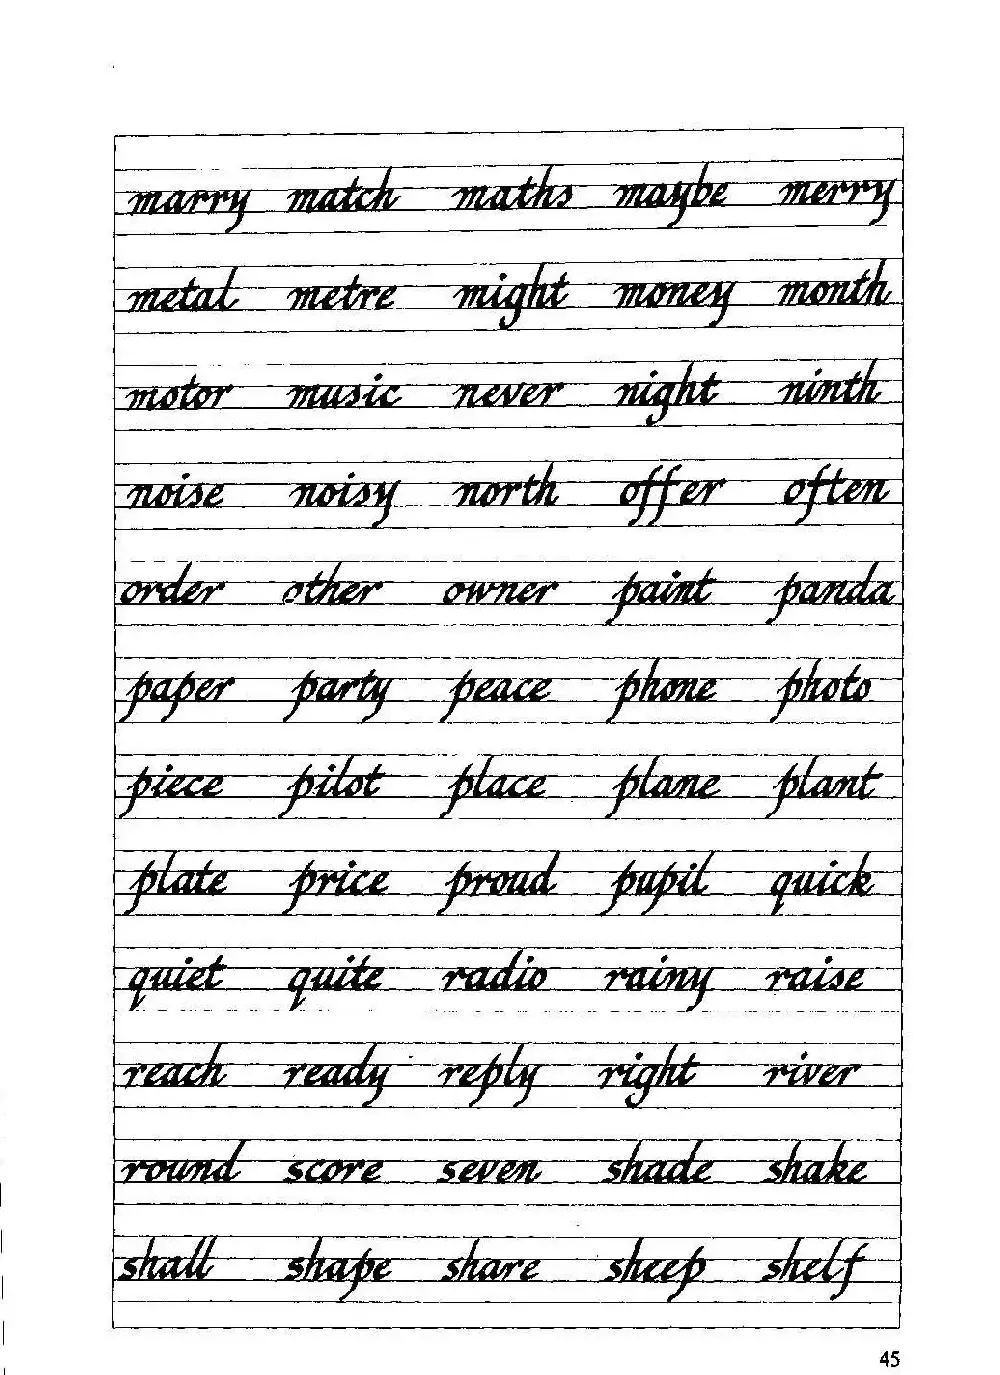 marry match maths maybe merry
metal metre might money month
motor music never night ninth
noise noisy north offer often
order other owner paint panda
paper party peace phone photo
piece pilot place plane plant
plate price proud pupil quick
quiet quite radio rainy raise
reach ready reply right river
round score seven shade shake
shall shape share sheep shelf
45